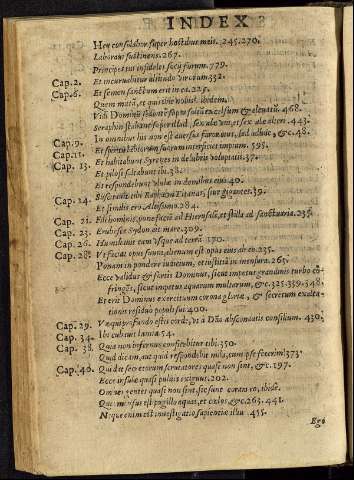 INDEX
Heu consolabor super hostibus meis. 245.270.
Laboravi sustinens. 267.
Principes tui infideles socij furum. 779.
Cap. 2. Et incurvabitur altitudo virorum 332.
Cap. 6. Et semen sanctum erit in ea. 225.
Quem mittā, et quis ibit nobis. ibidem.
Vidi Dominū sedentē super soliū excelsum & elevatū. 468.
Seraphin stabant super illud, sex alae uni, et sex alae alteri. 443.
In omnibus his non est aversus furor eius, sed adhuc, &c. 48.
Cap. 9.
Cap. 11. 595.
Cap. 13. Et habitabunt Syrenes in delubris voluptatis. 37.
Et pilosi saltabunt ibi. 38.
Et respondebunt ululae in domibus eius 40.
Cap. 14. Suscitavit tibi Raphaim Titanas, sive gigantes. 39.
Et similis ero Altissimo. 284.
Cap. 21.
Cap. 23. Erubesce Sydon ait mare. 309.
Cap. 26. Humiliavit eam usque ad terrā. 170.
Cap. 28. Ut faciat opus suum, alienum est opus eius ab eo. 235.
Ponam in pondere iudicium, et iustitiā in mensura. 265.
Ecce validus & fortis Dominus, sicut impetus grandinis turbo cō-
fringēs, sicut impetus aquarum multarum, &c. 325.359.548.
Et erit Dominus exercituum corona gloriae, & secretum exulta-
tionis residuo populi sui 400.
Cap. 29. Vae qui profundo estis corde, ut à Dño abscondatis consilium. 430.
Cap. 34. Ibi cubavit lamia 54.
Cap. 38. Quia non infernus confitebitur tibi. 350.
Quid dicam, aut quid respondebit mihi, cum ipse fecerim 373.
Cap. 40. Qui dat secretorum scrutatores quasi non sint, &c. 197.
Ecce insulae quasi pulvis exiguus. 202.
Omnes gentes quasi non sint, sic sunt coram eo, ibidē.
Quis mensus est pugillo aquas, et caelos, &c. 263.441.
Neque enim est investigatio sapientiae illius 455.
Ego